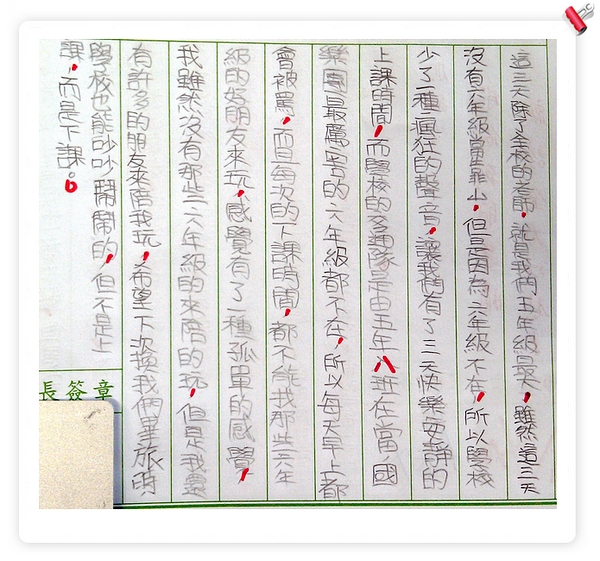 這三天除了全校的老師，就是我們五年級最大，雖然這三天
沒有六年級當靠山，但是因為六年級不在，所以學校
少了一種瘋狂的聲音，讓我們有了三天快樂安靜的
上課時間，而學校的交通隊是由五年八班在當國
樂團最厲害的六年級都不在，所以每天早上都
會被罵，而且每次的下課時間，都不能找那些六年
級的好朋友來玩，感覺有了一種孤單的感覺，
我雖然沒有那些六年級的來陪的玩，但是我還
有許多的朋友來陪我玩，希望下次換我們畢旅時
學校也能吵吵鬧鬧的，但不是上
課，而是下課。
長簽章